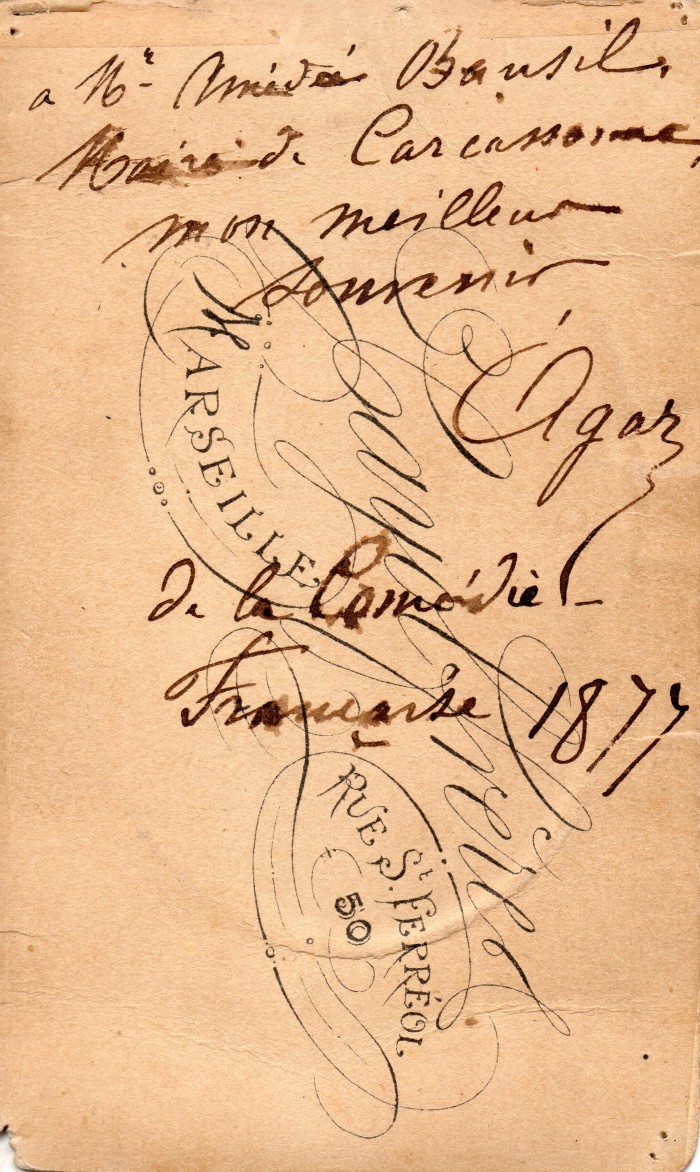 a Mr Amédée Bausil,
Maire de Carcassonne,
mon meilleur
souvenir
Agar
de la Comédie-
Française 1877
MARSEILLE
RUE St FERRÉOL
50